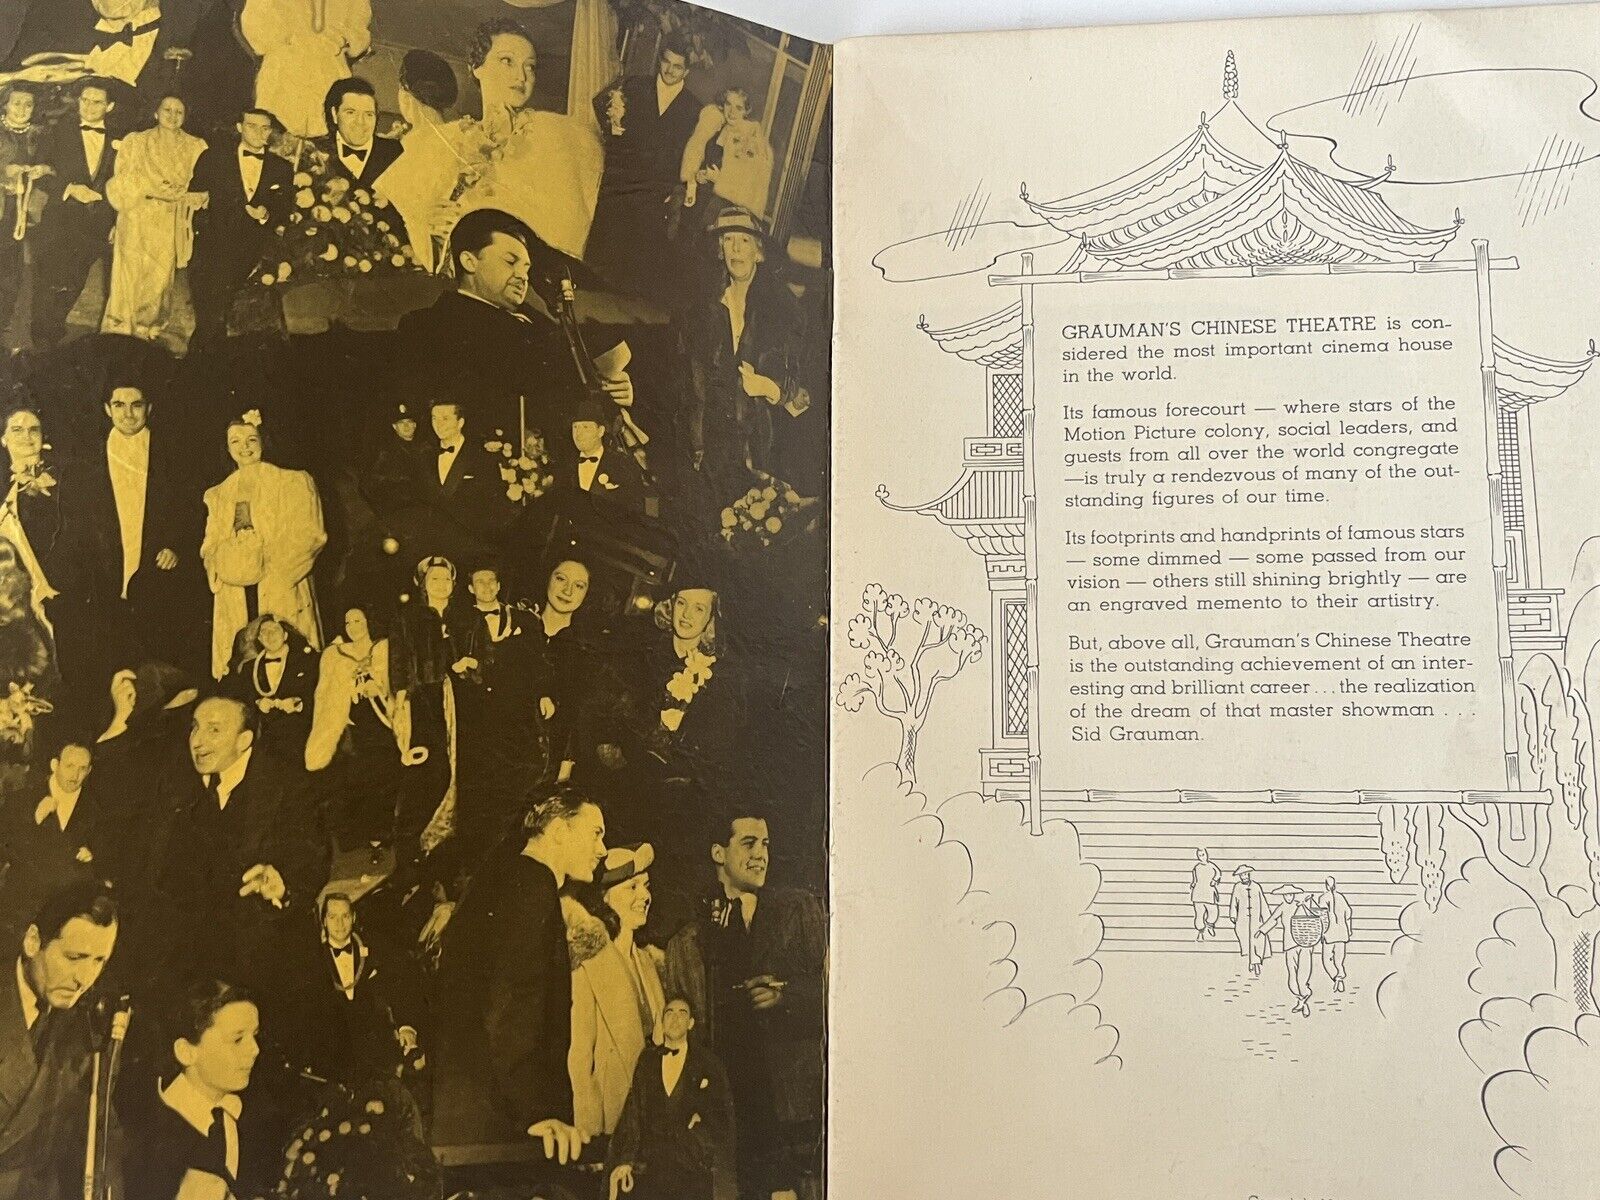 GRAUMAN'S CHINESE THEATRE is con-
sidered the most important cinema house
in the world.
Its famous forecourt — where stars of the
Motion Picture colony, social leaders, and
guests from all over the world congregate
—is truly a rendezvous of many of the out-
standing figures of our time.
Its footprints and handprints of famous stars
— some dimmed — some passed from our
vision — others still shining brightly — are
an engraved memento to their artistry.
But, above all, Grauman's Chinese Theatre
is the outstanding achievement of an inter-
esting and brilliant career . . . the realization
of the dream of that master showman . . .
Sid Grauman.